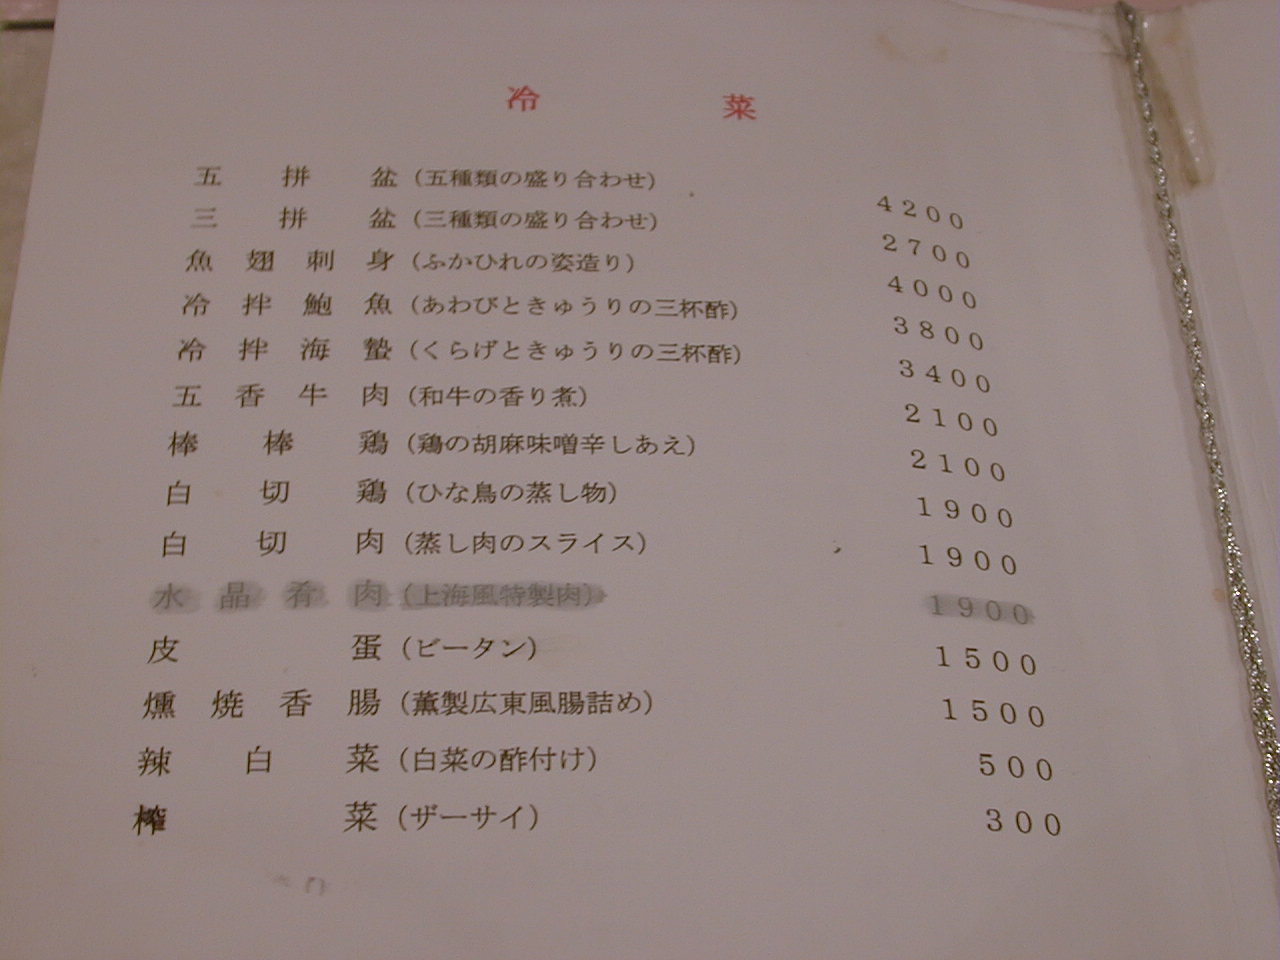 冷菜
五拼盆（五種類の盛り合わせ） 4200
三拼盆（三種類の盛り合わせ） 2700
魚翅刺身（ふかひれの姿造り） 4000
冷拌鮑魚（あわびときゅうりの三杯酢） 3800
冷拌海蟄（くらげときゅうりの三杯酢） 3400
五香牛肉（和牛の香り煮） 2100
棒棒鶏（鶏の胡麻味噌辛しあえ） 2100
白切鶏（ひな鳥の蒸し物） 1900
白切肉（蒸し肉のスライス） 1900
水晶肴肉（上海風特製肉） 1900
皮蛋（ビータン） 1500
燻焼香腸（薫製広東風腸詰め） 1500
辣白菜（白菜の酢付け） 500
榨菜（ザーサイ） 300